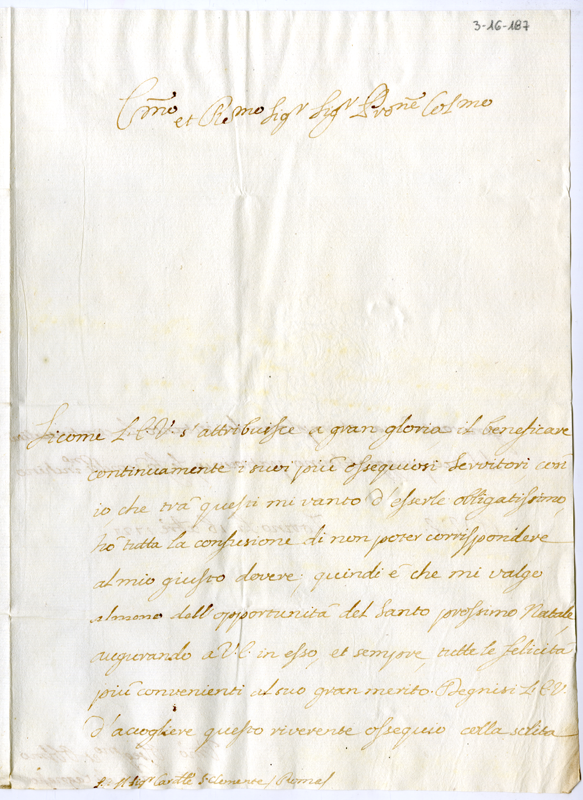 3-16-187
Emo et Rmo Sigr Sigr Prone Colmo
Sicome L'E.V. s'attribuisce a gran gloria il beneficare
continuamente i suoi più ossequiosi Servitori così
io che trà questi mi vanto d'esserle obligatissimo
hò tutta la confusione di non poter corrispondere
al mio giusto dovere; quindi è che mi valgo
almeno dell'opportunità del Santo prossimo Natale,
augurando a V.E. in esso, et sempre, tutte le felicità
più convenienti al suo gran merito. Degnisi L'E.V.
d'accogliere questo riverente ossequio colla solita
Sigr Cardle S. Clemente / Roma /